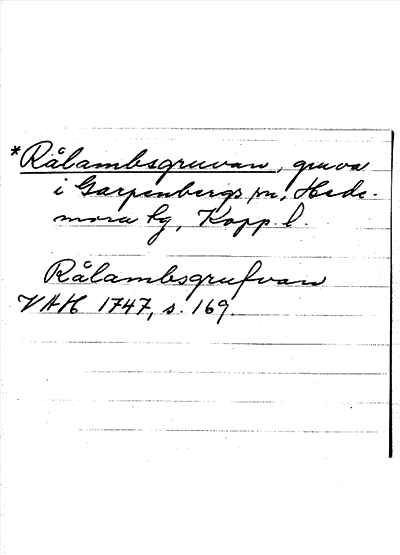 *Rålambsgruvan, gruva
i Garpenbergs sn, Hede-
mora tg, Kopp. l.
Rålambsgrufvan
VAH 1747, s. 169.